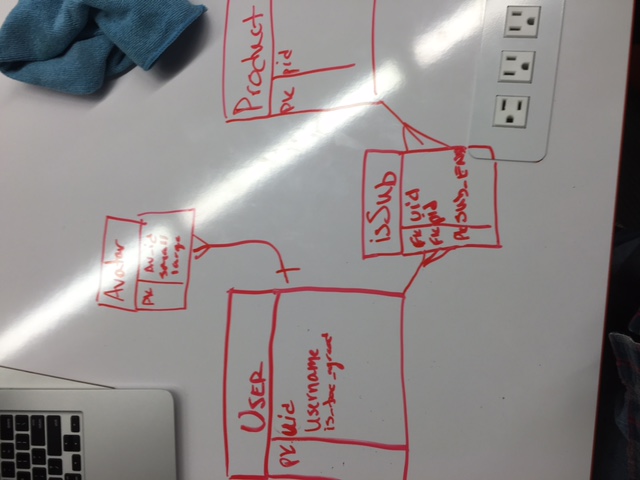 Avatar
PK Av_id
small
large
USER
PK uid
Username
Product
PK pid
isSub
FK uid
FK pid
PK